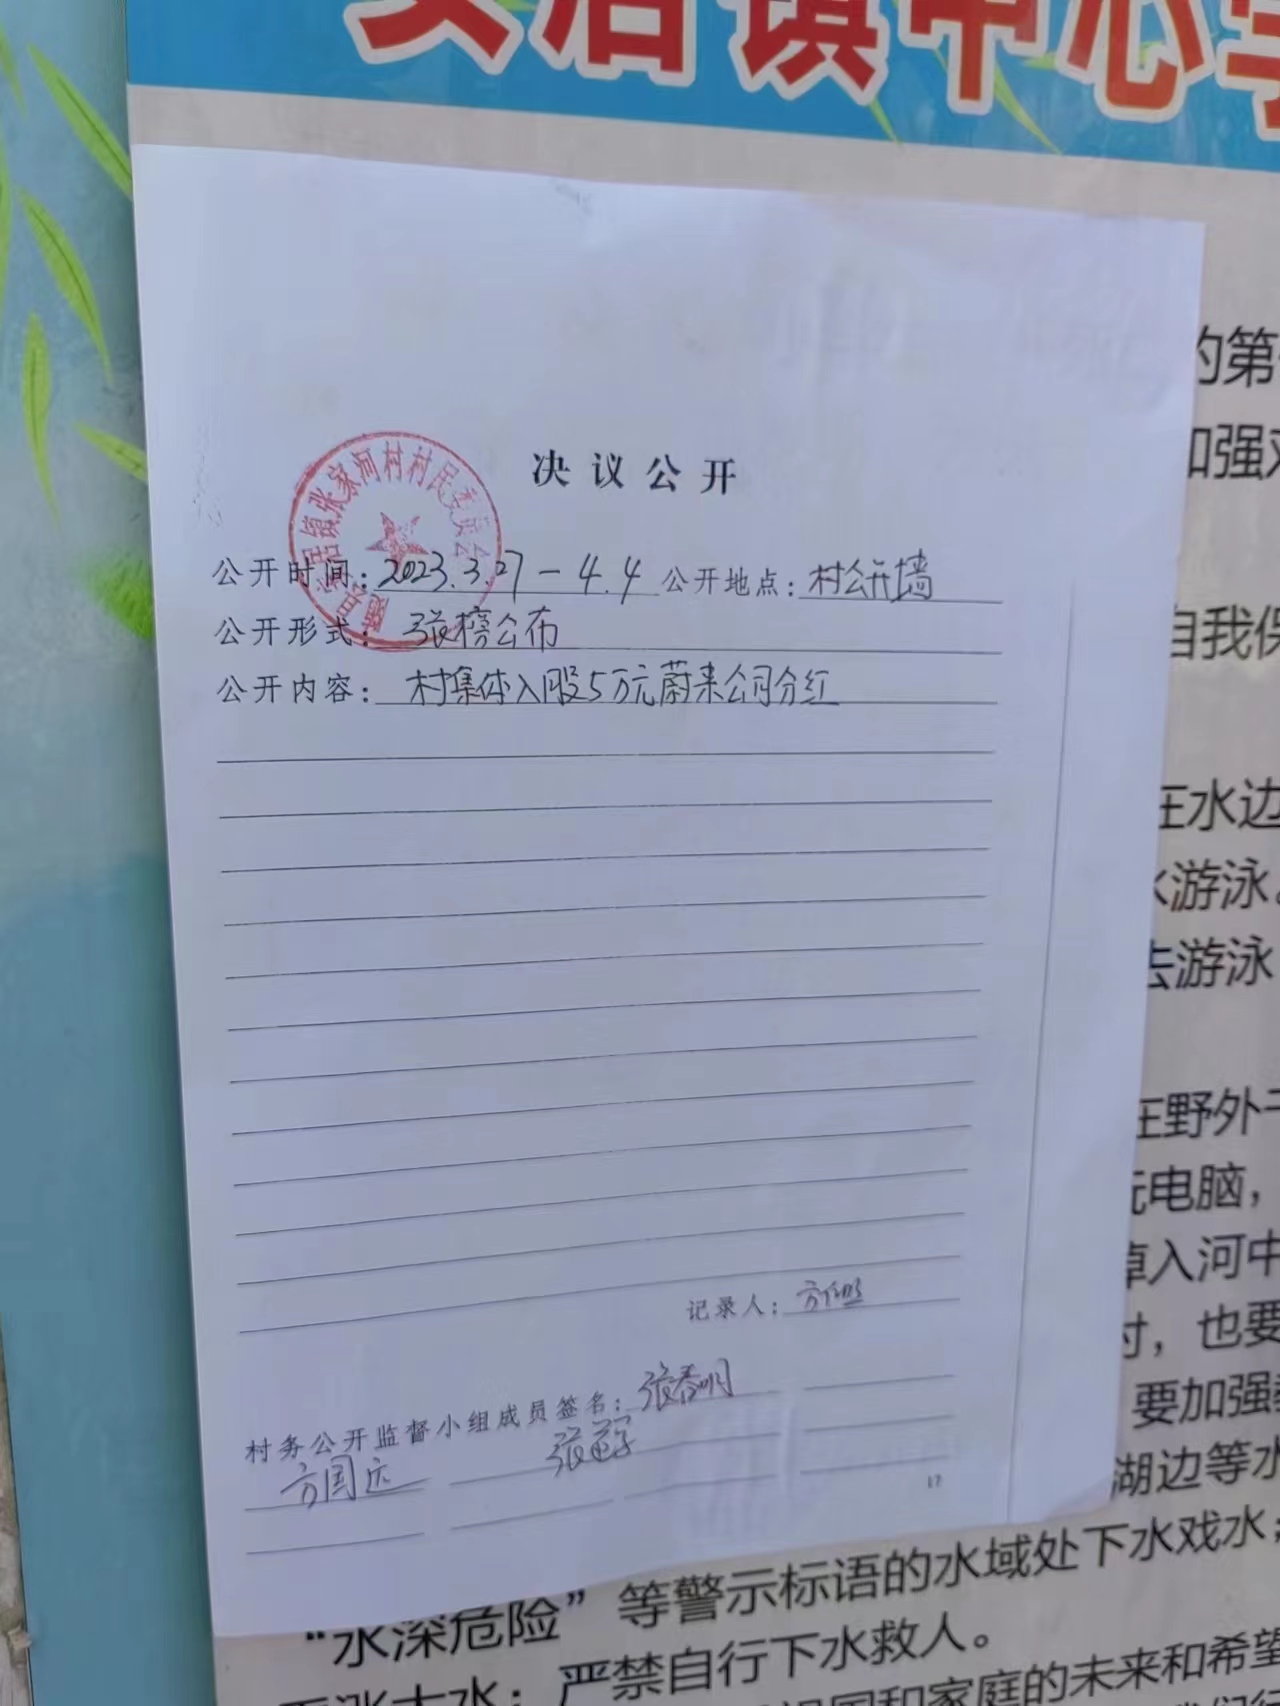 安居镇中心学
决议公开
随县安居镇张家河村村民委员会
公开时间：2023.3.27－4.4 公开地点：村公开墙
公开形式：张榜公布
公开内容：村集体入股5万元蔚来公司分红
记录人：
村务公开监督小组成员签名：张春明
方国庆
17
的第
加强对
自我保
在水边
水游泳。
去游泳
在野外
玩电脑，
掉入河中
时，也要
要加强
湖边等水
“水深危险”等警示标语的水域处下水戏水；
严禁自行下水救人。
和家庭的未来和希望